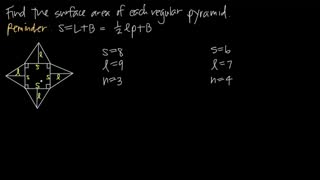 Find the surface area of each regular pyramid.
Reminder S=L+B = ½ lp+B
s=8
l=9
n=3
s=6
l=7
n=4
l
s
l
s
s
l
s
l